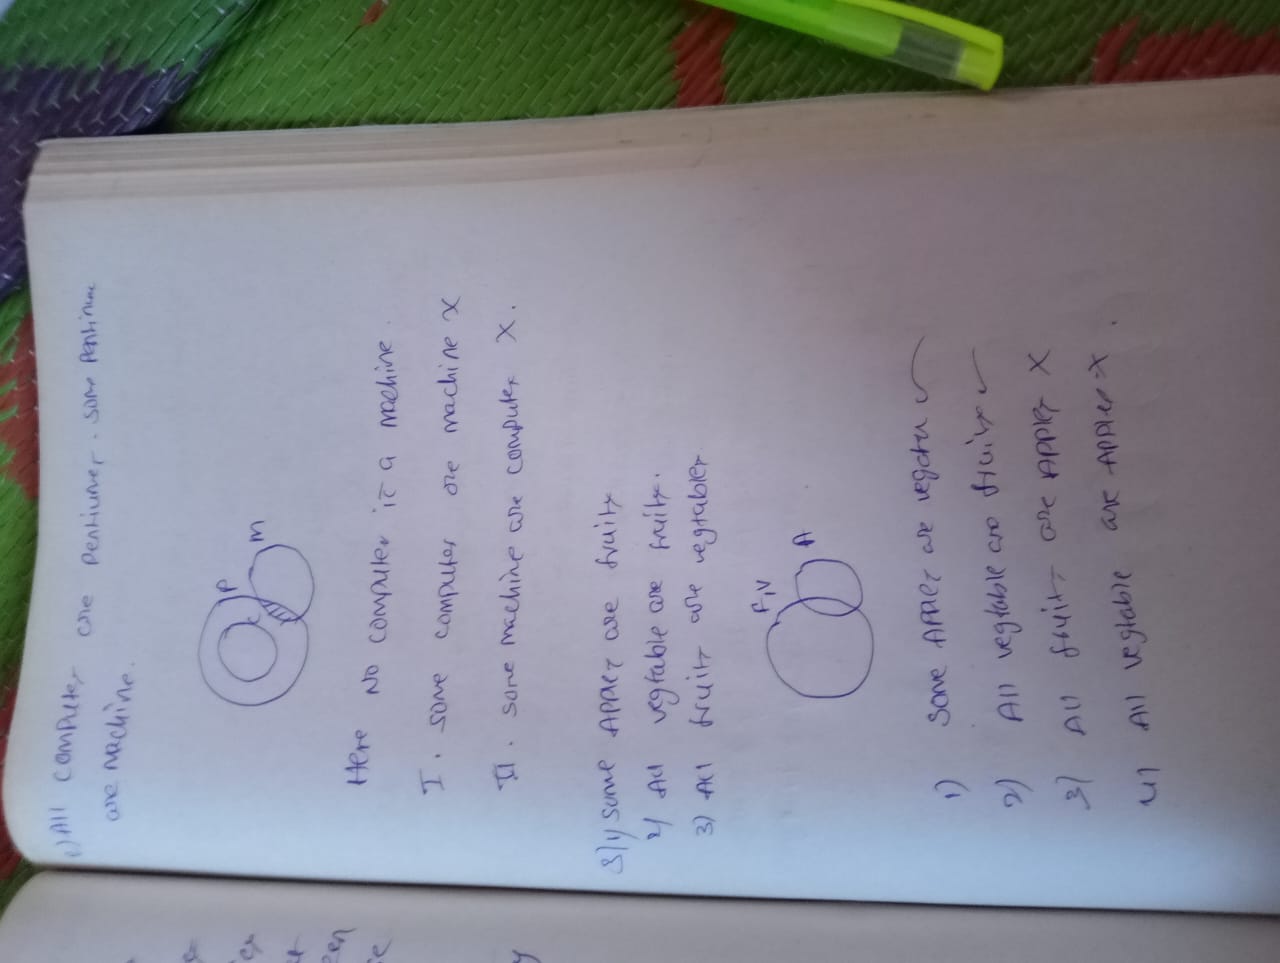 All computer are Pentiumer. some Pentium
are machine.
P
C
M
Here No computer is a machine.
I. some computer are machine X
II. some machine are computer X.
3) 1) some Apples are fruits
2) All vegtable are fruits.
3) All fruits are vegtables
F,V
A
1) Some Apples are ✓
2) All vegtable are fruits ✓
3) All fruits are Apples X
4) All vegtable are Apples X.
een
y